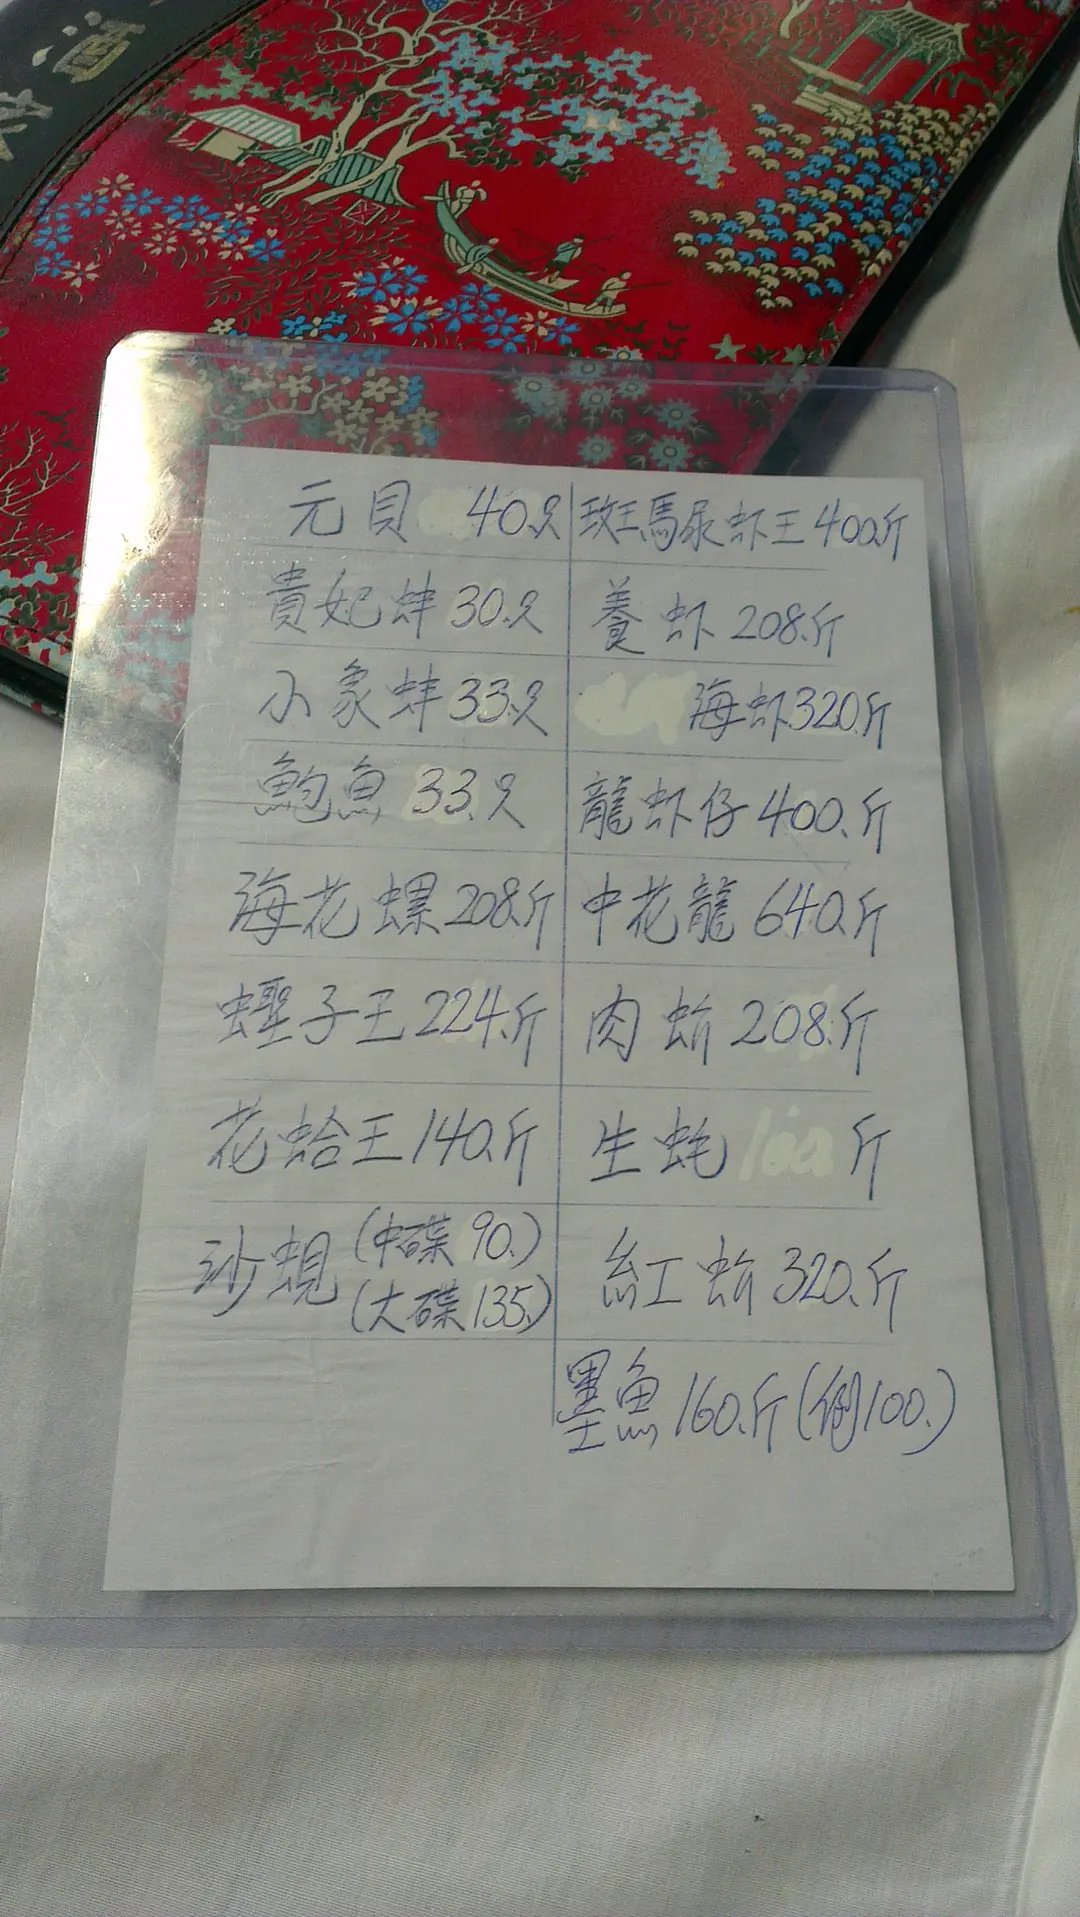 酒
元貝 40.只
貴妃蚌 30.只
小象蚌 33.只
鮑魚 33.只
海花螺 208.斤
蟶子王 224.斤
花蛤王 140.斤
沙蜆 (中碟 90.)
(大碟 135.)
斑馬尿虾王 400.斤
養虾 208.斤
海虾 320.斤
龍虾仔 400.斤
中花龍 640.斤
肉蚧 208.斤
生蚝 斤
紅蚧 320.斤
墨魚 160.斤(例100.)